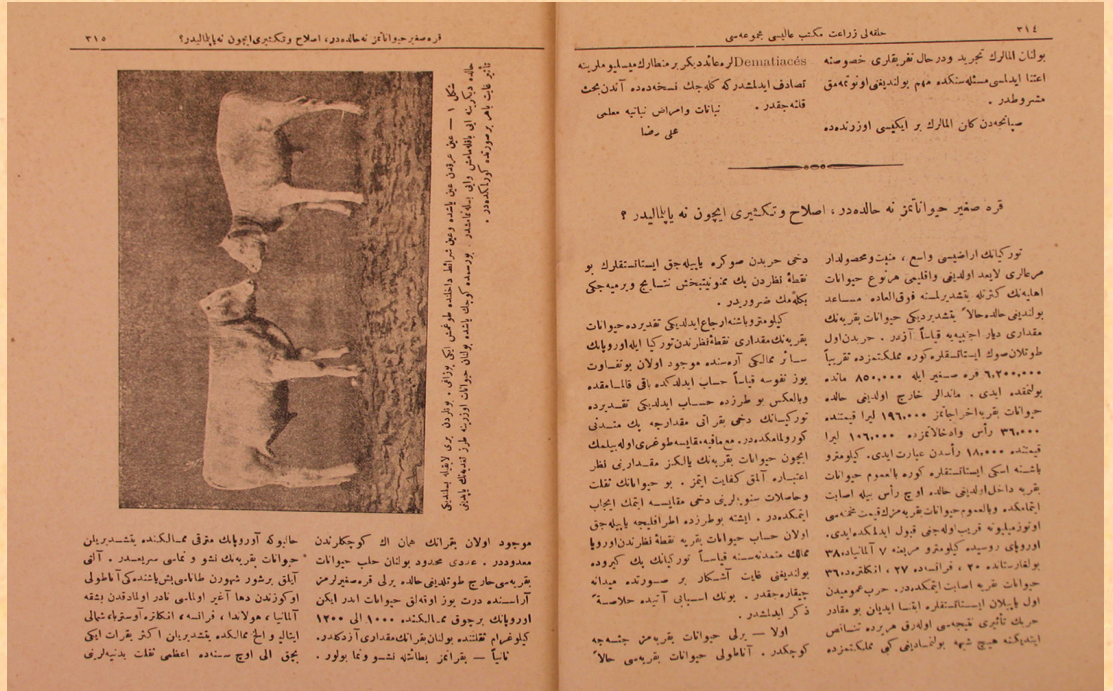 ٣١٤
حلقه‌لی زراعت مکتب عالیسی مجموعه‌سی
بولنان المالرك تجرید و درحال تفریقلری خصوصنه
اعتنا ایدلمسی مسئله‌سنکده مهم بولندیغنی اونوتمه‌مق
مشروطدر .
صپانجه‌دن کلن المالرك بر ایکیسی اوزرنده‌ده
Dematiacés لره عائد دیکر بر منطارك میسلیوملرینه
تصادف ایدلمشدرکه کله‌جك نسخه‌ده‌ده آندن بحث
قلنه‌جقدر .
نباتات وامراض نباتیه معلمی
علی رضا
قره صغیر حیواناتمز نه حالده‌در ، اصلاح و تکثیری ایچون نه یاپلمالیدر ؟
تورکیانك اراضیسی واسع ، منبت ومحصولدار
مرعالری لایعد اولدیغی واقلیمی هرنوع حیوانات
اهلیه‌نك کثرتله یتشدیرلمسنه فوق‌العاده مساعد
بولندیغی حالده حالاً یتشدیردیکی حیوانات بقریه‌نك
مقداری دیار اجنبیه‌یه قیاساً آزدر . حربدن اول
طوتلان صوك ایستاتستقلره کوره مملکتمزده تقریباً
٦,٢٠٠,٠٠٠ قره صغیر ایله ٨٥٠,٠٠٠ مانده
بولنمقده ایدی . ماندالر خارج اولدیغی حالده
حیوانات بقریه اخراجاتمز ١٩٦,٠٠٠ لیرا قیمتنده
٣٦,٠٠٠ رأس وادخالاتمزده ١٠٦,٠٠٠ لیرا
قیمتنده ١٨,٠٠٠ رأسدن عبارت ایدی. کیلومترو
باشنه اسکی ایستاتستقلره کوره بالعموم حیوانات
بقریه داخل اولدیغی حالده اوچ رأس بیله اصابت
ایتمامکده وبالعموم حیوانات بقریه‌مزك قیمت مخمنه‌سی
اوتوز میلیونه قریب اوله‌جغی قبول ایدلمکده ایدی.
اوروپای روسیده کیلومترو مربعنه ٧ آلمانیاده ٣٨
بولغارستانده ٢٠ ، فرانساده ٢٧ ، انکلتره‌ده ٣٦
حیوانات بقریه اصابت ایتمکده‌در . حرب عمومیدن
اول یاپیلان ایستاتستقلره ابقسا ایدیان بو مقادر
حربك تأثیری نتیجه‌سی اوله‌رق هریرده تناقص
ایتدیکنه هیچ شبهه بولنمادیغی کبی مملکتمزده
دخی حربدن صوکره یاپیله‌جق ایستاتستقلرك بو
نقطهٔ نظردن پك ممنونیتبخش نتایج ویرمیه‌جکی
بکله‌مك ضروریدر .
کیلومترو باشنه ارجاع ایدلدیکی تقدیرده حیوانات
بقریه‌نك مقداری نقطهٔ نظرندن تورکیا ایله اوروپانك
سائر ممالکی آره‌سنده موجود اولان بو تفاوت
یوز نفوسه قیاساً حساب ایدلدکده باقی قالمامقده
وبالعکس بو طرزده حساب ایدلدیکی تقدیرده
تورکیانك دخی بقراتی مقدارجه پك متدنی
کورولمامکده‌در. مع‌مافیه مقایسه طوغری اوله‌بیلمك
ایچون حیوانات بقریه‌نك یالکز مقدارینی نظر
اعتباره آلمق کفایت ایتمز . بو حیواناتك ثقلت
وحاصلات سنویه‌لرینی دخی مقایسه ایتمك ایجاب
ایتمکده‌در . ایشته بو طرزده اطرافلیجه یاپیله‌جق
اولان حساب حیوانات بقریه نقطهٔ نظرندن اوروپا
ممالك متمدنه‌سنه قیاساً تورکیانك پك کیروده
بولندیغنی غایت آشکار بر صورتده میدانه
چیقاره‌جقدر . بونك اسبابی آتیده خلاصةً
ذکر ایدلمشدر .
اولا — یرلی حیوانات بقریه‌مز جثه‌جه
کوچکدر . آناطولی حیوانات بقریه‌سی حالاً
قره صغیر حیواناتمز نه حالده‌در ، اصلاح و تکثیری ایچون نه یاپلمالیدر؟
٣١٥
شکل ١ — عین عرقدن عین یاشده وعین شرائط داخلنده طوغمش ایکی بوزاغی . بونلردن بری لایقیله بسلندیکی
حالده دیکرینه ایی باقلمامش وایی بسلنمامشدر . بورسمده کوچك یاشده بولنان حیوانات اوزرینه طرز تغدینك یاپدیغی
تأثیر غایت باهر بر صورتده کورلمکده‌در .
موجود اولان بقراتك همان اك کوچکلرندن
معدوددر . عددی محدود بولنان حلب حیوانات
بقریه‌سی خارج طوتلدیغی حالده یرلی قره صغیرلرمز
آراسنده درت یوز اوقه‌لق حیوانات ایدر ایکن
اوروپانك برچوق ممالکنده ١٠٠٠ الی ١٢٠٠
کیلوغرام ثقلتنده بولنان بقراتك مقداری آزدکلدر.
ثانیاً — بقراتمز بطائتله نشو ونما بولور .
حالبوکه آوروپانك مترقی ممالکنده یتشدیریلان
حیوانات بقریه‌نك نشو و نماسی سریعدر . آلتی
آیلق برشور شهورن طاناسی بش یاشنده‌کی آناطولی
اوکوزندن دها آغیر اولماسی نادر اولمادقدن بشقه
آلمانیا ، هولاندا ، فرانسه ، انکلتره اوستریا، شمالی
ایتالیا و الخ ممالکده یتشدیریلان اکثر بقرات ایکی
بچق الی اوچ سنه‌ده اعظمی ثقلت بدنیه‌لرینی